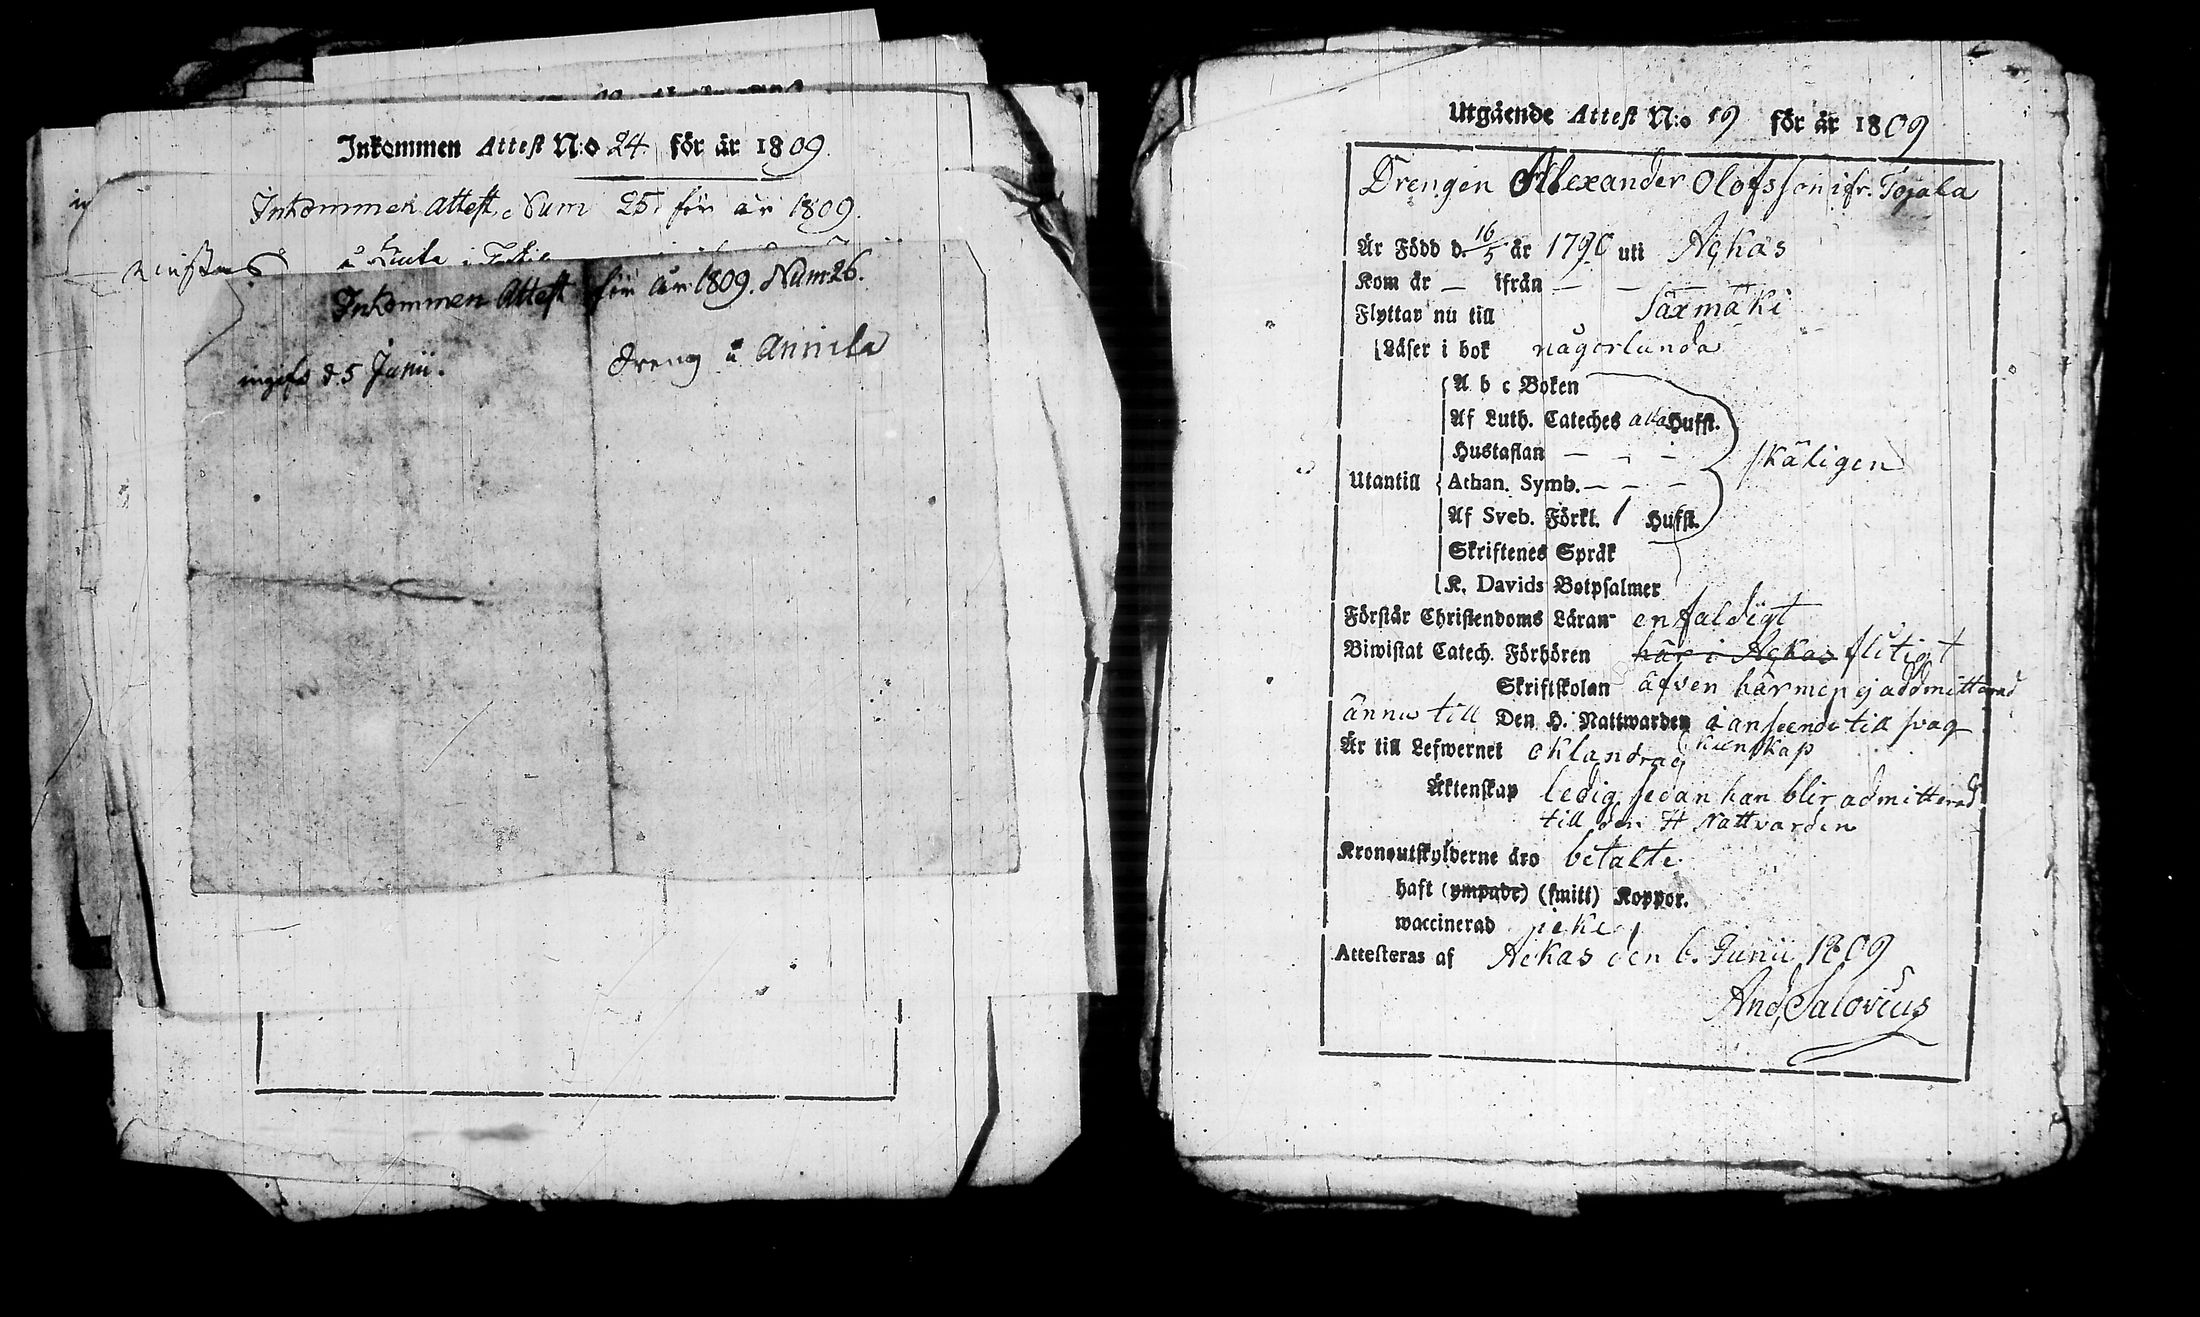 Inkommen Attest N:o 24. för år 1809.
Inkommen attest, Num 25. för år 1809.
Inkommen Attest för år 1809. Num 26.
ingifs d 5 Junii.
dreng å Annila
Utgående Attest N:o 19 för år 1809
Drengen Alexander Olofsson ifr. Tojala
År Född d. 16/5 år 1790 uti Ackas
Kom år — ifrån — — —
Flyttar nu till Säxmäki
Läser i bok någorlunda
A b c Boken
Af Luth. Cateches alla Hufst.
Hustaflan — — —
skäligen
Utantill Athan. Symb. — — —
Af Sveb. Förkl. 1 Hufst.
Skriftenes Språk
K. Davids Botpsalmer
Förstår Christendoms Läran enfaldigt
Biwistat Catech. Förhören här i Ackas flitigt
Skriftskolan äfven men ej admitterad
ännu till Den H. Nattwarden i anseende till svag
kunskap
Är till Lefwernet oklandrad
Äktenskap ledig, sedan han blir admitterad
till den H Nattvarden
Kronoutskylderne äro betalte
haft (ympade) (smitt) Koppor.
waccinerad icke
Attesteras af Ackas den 6. Junii 1809
And, Salovius